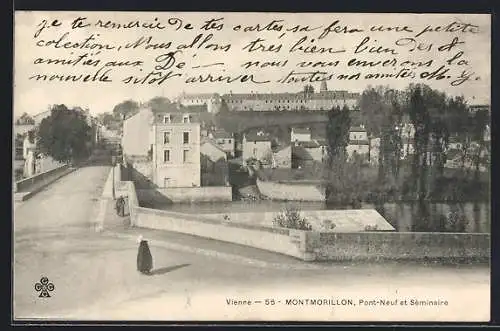 je te remercie de tes cartes sa fera une petite
colection. Nous allons très bien bien des
amitiés aux De — nous vous enverons
la nouvelle sitot arriver toutes nos amitiés
Vienne — 55 - MONTMORILLON, Pont-Neuf et Séminaire